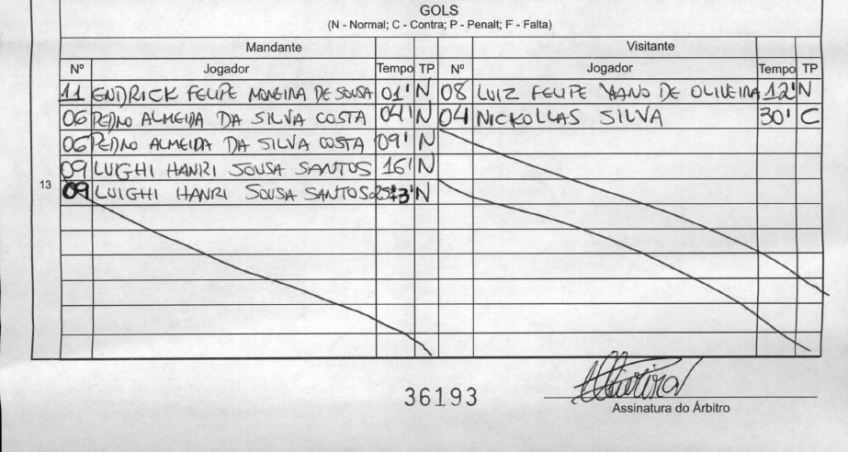 GOLS
(N - Normal; C - Contra; P - Penalt; F - Falta)
Mandante Visitante
Nº Jogador Tempo TP Nº Jogador Tempo TP
11 ENDRICK FELIPE MOREIRA DE SOUSA 01' N 08 LUIZ FELIPE YANO DE OLIVEIRA 12' N
06 PEDRO ALMEIDA DA SILVA COSTA 04' N 04 NICKOLLAS SILVA 30' C
06 PEDRO ALMEIDA DA SILVA COSTA 09' N
09 LUIGHI HANRI SOUSA SANTOS 16' N
13
09 LUIGHI HANRI SOUSA SANTOS N
36193
Assinatura do Árbitro